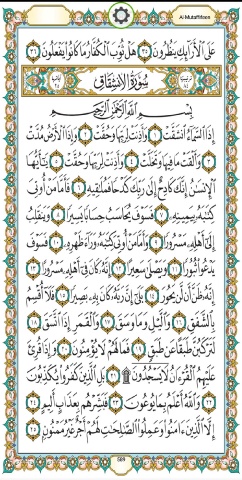 Al-Mutaffifeen
عَلَى ٱلْأَرَآئِكِ يَنظُرُونَ ٣٥ هَلْ ثُوِّبَ ٱلْكُفَّارُ مَا كَانُوا۟ يَفْعَلُونَ ٣٦
سُورَةُ الانْشِقَاقِ
بِسْمِ ٱللَّهِ ٱلرَّحْمَٰنِ ٱلرَّحِيمِ
إِذَا ٱلسَّمَآءُ ٱنشَقَّتْ ١ وَأَذِنَتْ لِرَبِّهَا وَحُقَّتْ ٢ وَإِذَا ٱلْأَرْضُ مُدَّتْ
٣ وَأَلْقَتْ مَا فِيهَا وَتَخَلَّتْ ٤ وَأَذِنَتْ لِرَبِّهَا وَحُقَّتْ ٥ يَٰٓأَيُّهَا
ٱلْإِنسَٰنُ إِنَّكَ كَادِحٌ إِلَىٰ رَبِّكَ كَدْحًا فَمُلَٰقِيهِ ٦ فَأَمَّا مَنْ أُوتِىَ
كِتَٰبَهُۥ بِيَمِينِهِۦ ٧ فَسَوْفَ يُحَاسَبُ حِسَابًا يَسِيرًا ٨ وَيَنقَلِبُ
إِلَىٰٓ أَهْلِهِۦ مَسْرُورًا ٩ وَأَمَّا مَنْ أُوتِىَ كِتَٰبَهُۥ وَرَآءَ ظَهْرِهِۦ ١٠ فَسَوْفَ
يَدْعُوا۟ ثُبُورًا ١١ وَيَصْلَىٰ سَعِيرًا ١٢ إِنَّهُۥ كَانَ فِىٓ أَهْلِهِۦ مَسْرُورًا ١٣
إِنَّهُۥ ظَنَّ أَن لَّن يَحُورَ ١٤ بَلَىٰٓ إِنَّ رَبَّهُۥ كَانَ بِهِۦ بَصِيرًا ١٥ فَلَآ أُقْسِمُ
بِٱلشَّفَقِ ١٦ وَٱلَّيْلِ وَمَا وَسَقَ ١٧ وَٱلْقَمَرِ إِذَا ٱتَّسَقَ ١٨
لَتَرْكَبُنَّ طَبَقًا عَن طَبَقٍ ١٩ فَمَا لَهُمْ لَا يُؤْمِنُونَ ٢٠ وَإِذَا قُرِئَ
عَلَيْهِمُ ٱلْقُرْءَانُ لَا يَسْجُدُونَ ۩ ٢١ بَلِ ٱلَّذِينَ كَفَرُوا۟ يُكَذِّبُونَ
٢٢ وَٱللَّهُ أَعْلَمُ بِمَا يُوعُونَ ٢٣ فَبَشِّرْهُم بِعَذَابٍ أَلِيمٍ ٢٤
إِلَّا ٱلَّذِينَ ءَامَنُوا۟ وَعَمِلُوا۟ ٱلصَّٰلِحَٰتِ لَهُمْ أَجْرٌ غَيْرُ مَمْنُونٍۭ ٢٥
589